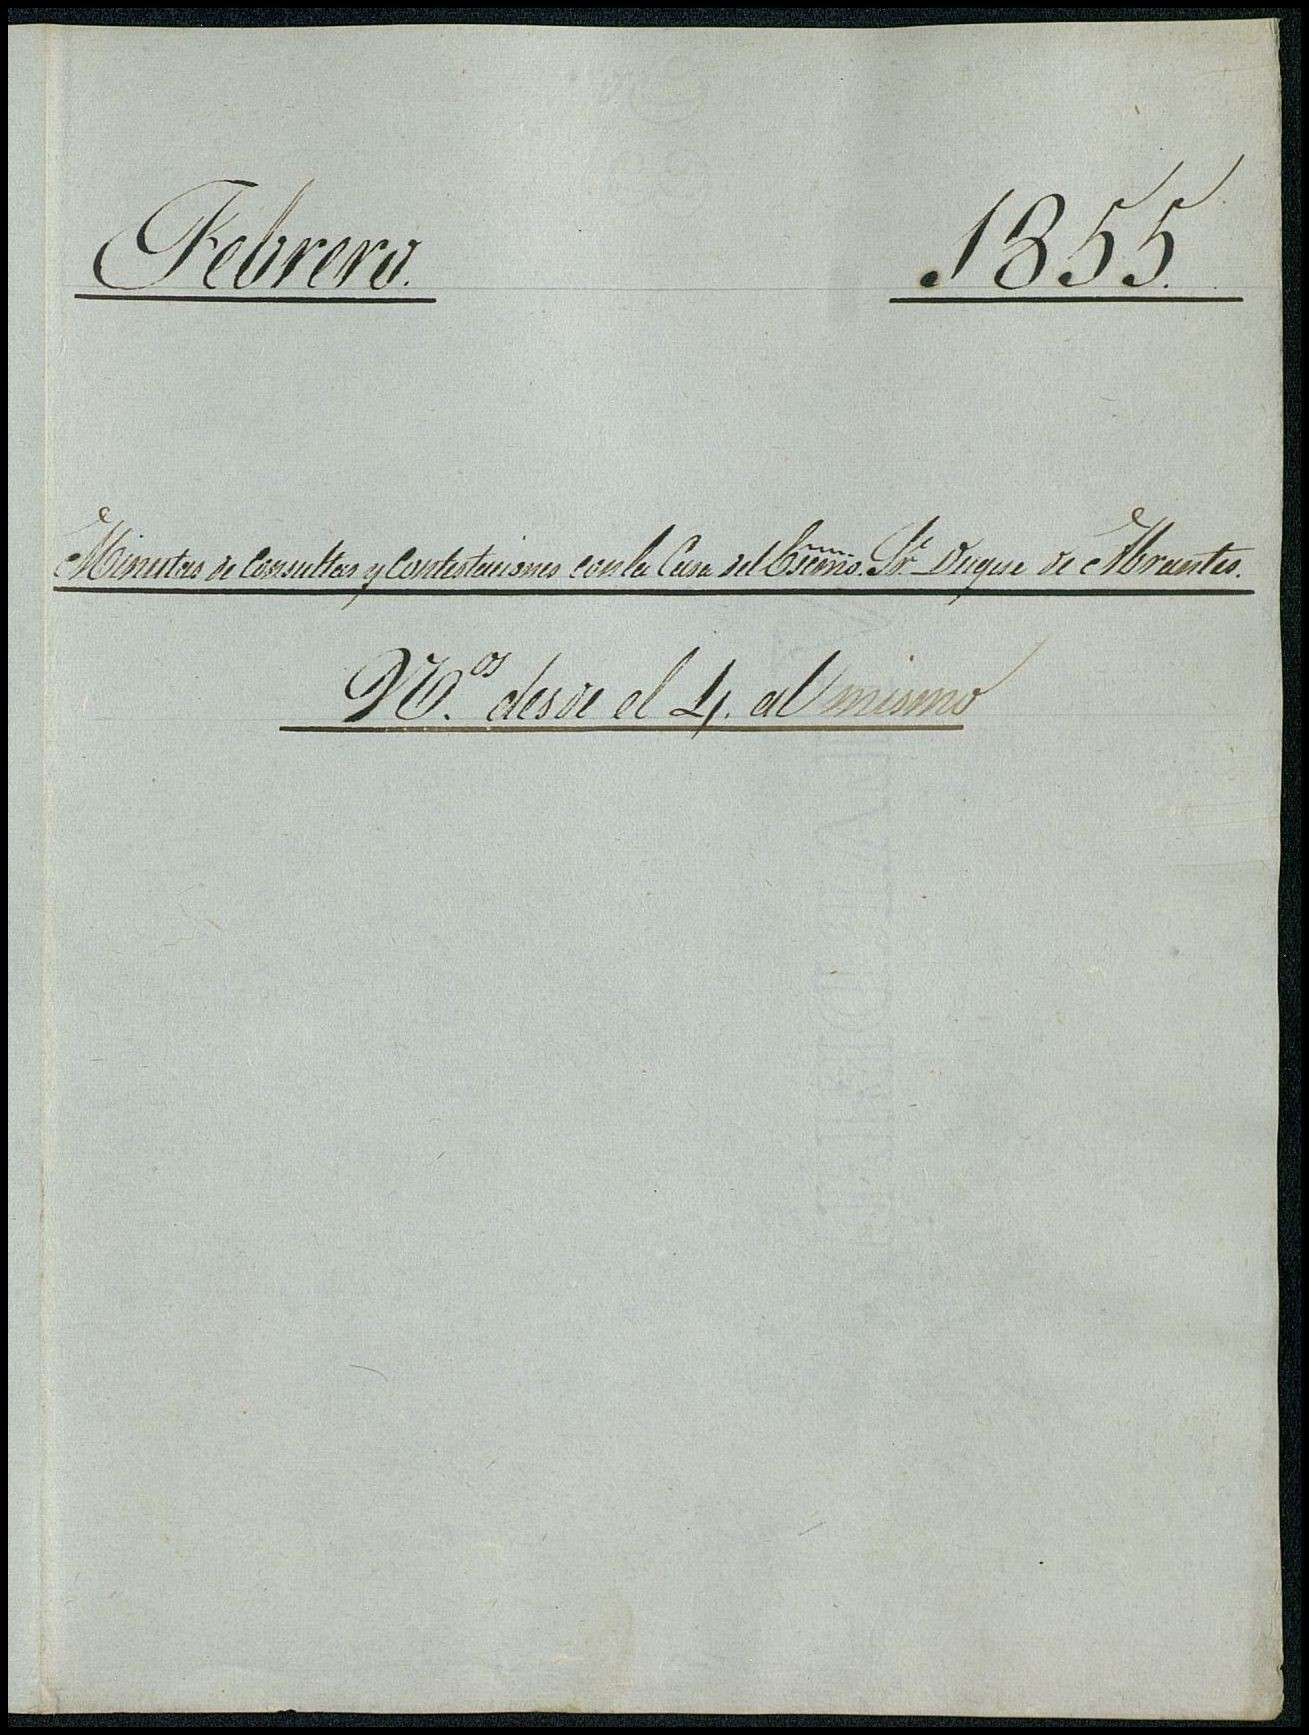 Febrero. 1855.
Minutas de Consultas y Contestaciones con la Casa del Escmo. Sr. Duque de Abrantes.
N.os desde el 4. al mismo